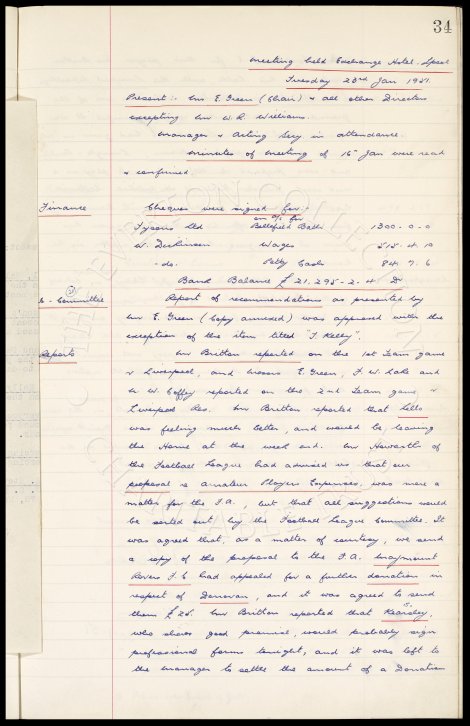 34
Meeting held Exchange Hotel. Lpool
Tuesday 23rd Jan 1951.
Present:- Mr E. Green (Chair) & all other Directors
excepting Mr W. R. Williams.
Manager & Acting Secy in attendance.
Minutes of Meeting of 16th Jan were read
& confirmed.
Finance Cheques were signed for:-
on a/c for
Tysons Ltd Bellefield Baths 1300-0-0
W. Dickinson Wages 515.4.10
-do- Petty Cash 84.9.6
Bank Balance £21.295-2.4 D
Sub-Committee Report of recommendations as presented by
Mr E. Green (Copy annexed) was approved with the
exception of the item titled "J. Kelly".
Reports Mr Britton reported on the 1st Team game
v Liverpool, and Messrs E. Green, F. W. Lake and
W Coffey reported on the 2nd Team game v
Liverpool Res. Mr Britton reported that Lello
was feeling much better, and would be leaving
the Home at the week end. Mr Howarth of
the Football League had advised us that our
proposal re Amateur Players Expenses, was more a
matter for the F.A., but that all suggestions would
be sorted out by the Football League Committee. It
was agreed that, as a matter of courtesy, we send
a copy of the proposal to the F.A.
Rovers F.C had appealed for a further donation in
respect of Donovan, and it was agreed to send
them £25. Mr Britton reported that Kearsley,
who shows good promise, would probably sign
professional forms tonight, and it was left to
the manager to settle the amount of a Donation